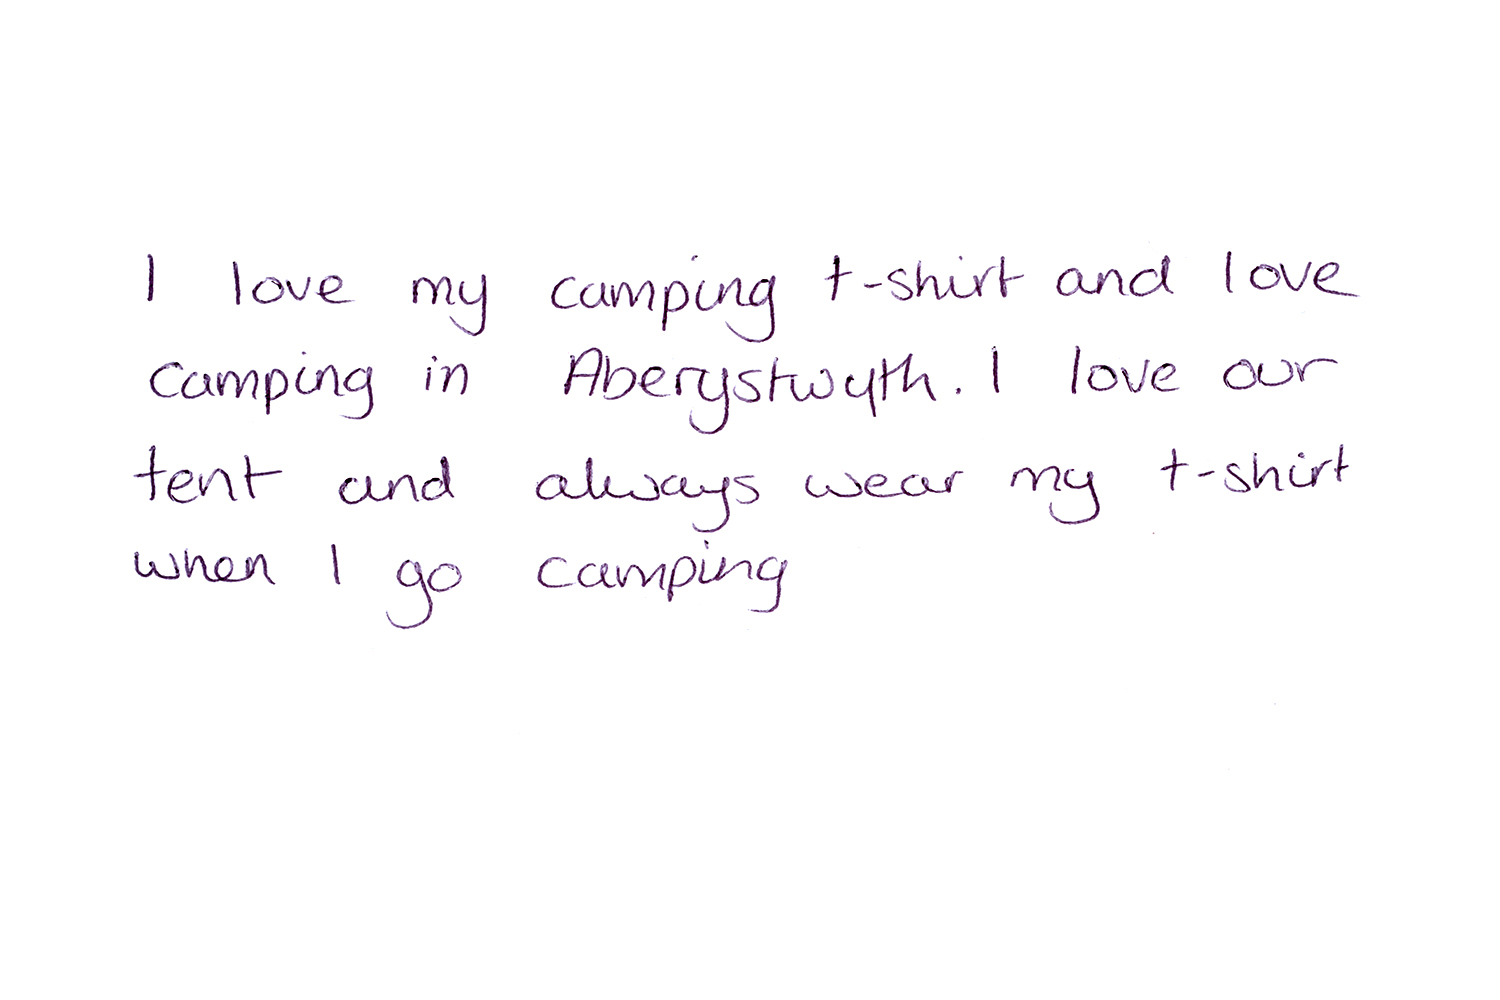 I love my camping t-shirt and love
camping in Aberystwyth. I love our
tent and always wear my t-shirt
when I go camping